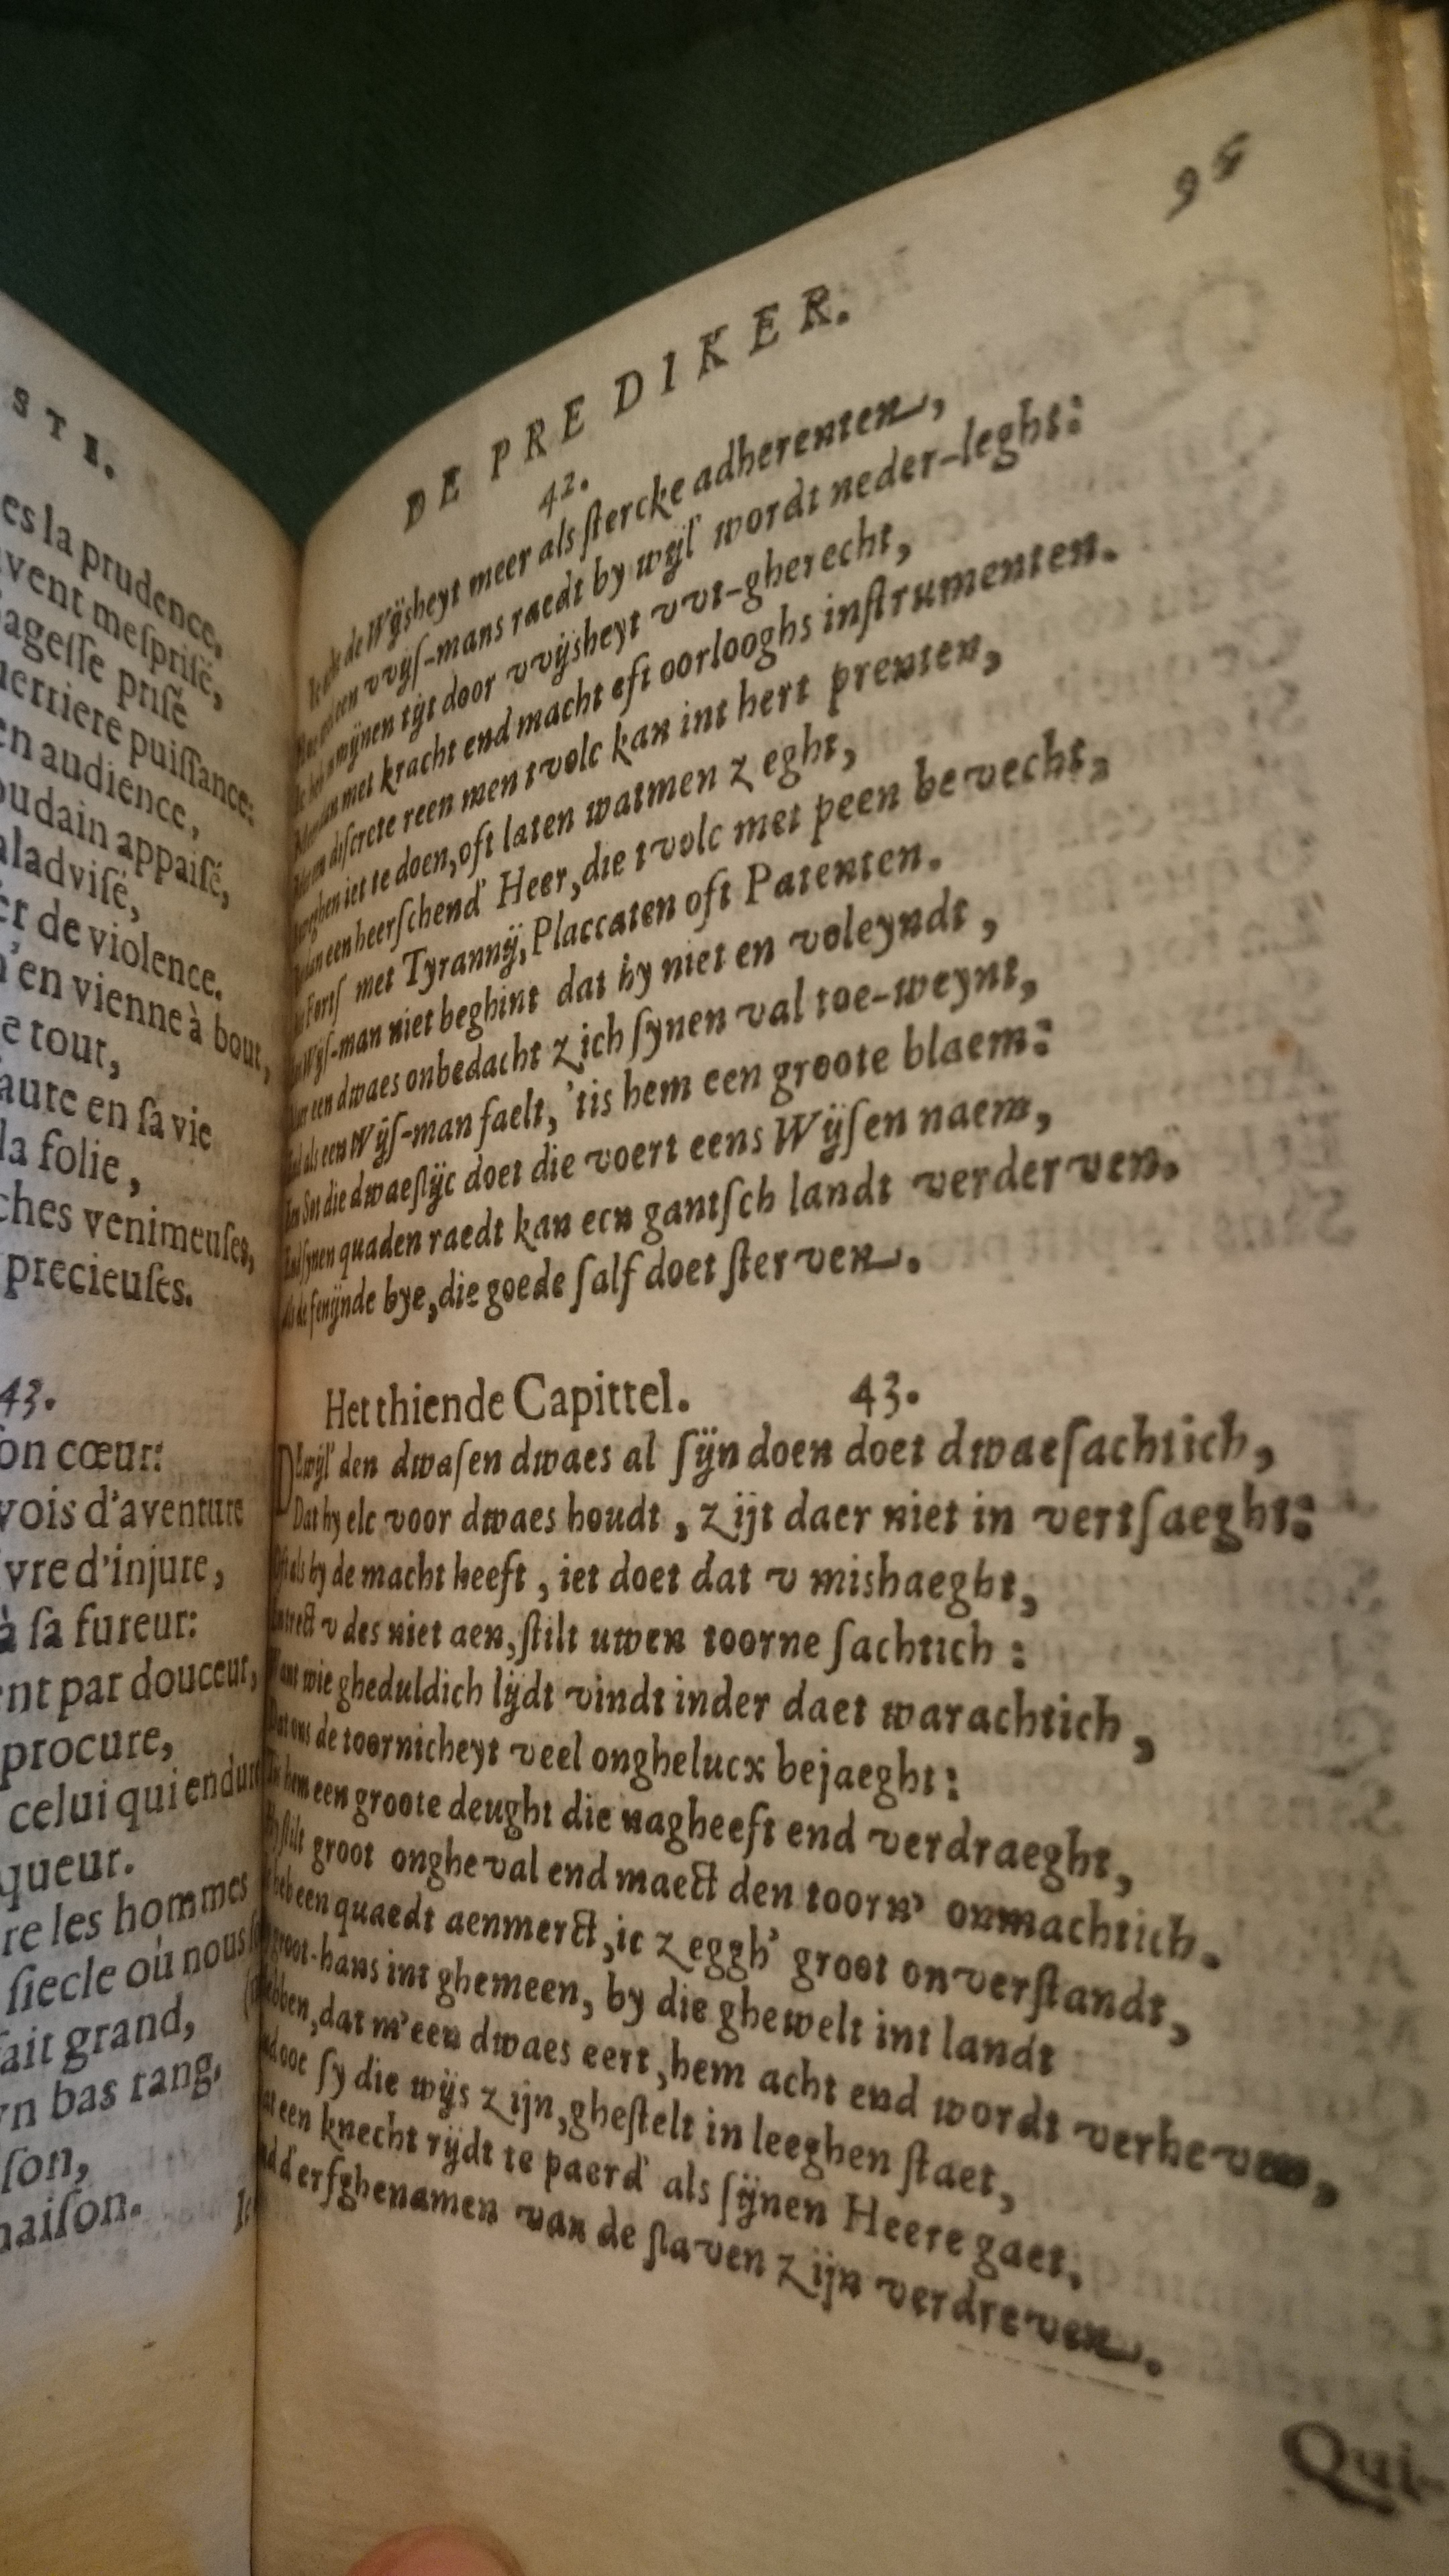 STE.
es la prudence,
vent mesprisé,
agesse prisé
uerriere puissance:
en audience,
oudain appaisé,
aladvisé,
er de violence.
'en vienne à bout,
e tout,
aute en sa vie
la folie,
ches venimeuses,
precieuses.
43.
on cœur:
vois d'aventure
vre d'injure,
à sa fureur:
nt par douceur,
procure,
celui qui endure
queur.
re les hommes
siecle où nous
ait grand,
n bas rang,
son,
maison.
95
DE PREDIKER.
42.
de Wijsheyt meer als stercke adherenten,
een vvijs-mans raedt by wijl' wordt neder-leght:
mijnen tijt door vvijsheyt vvt-gherecht,
met kracht end macht oft oorlooghs instrumenten.
discrete reen men tvolc kan int hert prenten,
iet te doen, oft laten watmen zeght,
een heerschend' Heer, die tvolc met peen bevecht,
Forts met Tyrannij, Placcaten oft Patenten.
Wijs-man niet beghint dat hy niet en voleyndt,
een dwaes onbedacht zich synen val toe-weynt,
als een Wijs-man faelt, 'tis hem een groote blaem:
Een Sot die dwaeslijc doet die voert eens Wijsen naem,
synen quaden raedt kan een gantsch landt verderven.
de fenijnde bye, die goede salf doet sterven.
Het thiende Capittel. 43.
Dewijl' den dwasen dwaes al sijn doen doet dwaesachtich,
Dat hy elc voor dwaes houdt, zijt daer niet in vertsaeght:
Oft als hy de macht heeft, iet doet dat v mishaeght,
Entrect v des niet aen, stilt uwen toorne sachtich:
Want wie gheduldich lijdt vindt inder daet warachtich,
Dat ons de toornicheyt veel onghelucx bejaeght:
hem een groote deught die nagheeft end verdraeght,
stilt groot ongheval end maect den toorn' onmachtich.
heb een quaedt aenmerct, ic zeggh' groot onverstandt,
groot-hans int ghemeen, by die ghewelt int landt
hebben, dat m'een dwaes eert, hem acht end wordt verheven,
ooc sy die wijs zijn, ghestelt in leeghen staet,
Dat een knecht rijdt te paerd' als sijnen Heere gaet,
d'erfghenamen van de slaven zijn verdreven.
Qui-